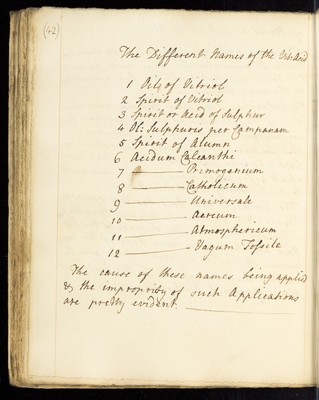 (42)
The Different Names of the Vit: Acid
1 Oil of Vitriol
2 Spirit of Vitriol
3 Spirit or Acid of Sulphur
4 Ol: Sulphuris per Campanam
5 Spirit of Alumn
6 Acidum Calcanthi
7 ——— Primogenium
8 ——— Catholicum
9 ——— Universale
10 ——— Aereum
11 ——— Atmosphericum
12 ——— Vagum Fossile
The cause of these names being applied
& the impropriety of such Applications
are pretty evident. ———